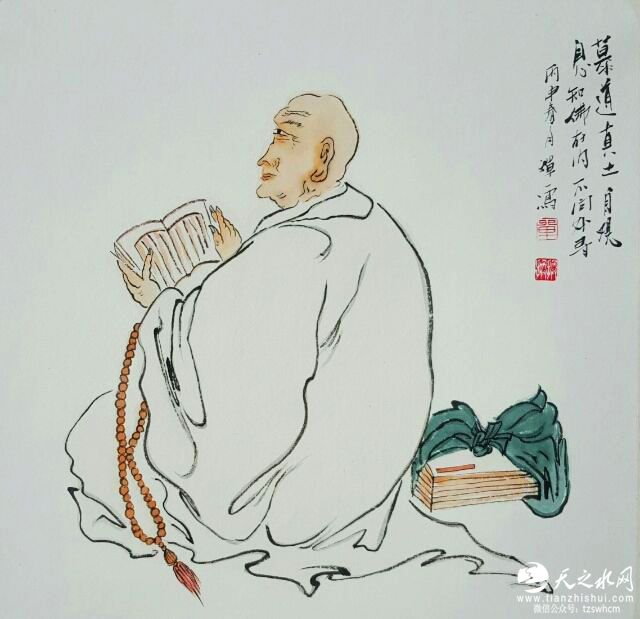 慕道真士自观
自心知佛在内不向外寻
丙申春月 写
天之水网
www.tianzhishui.com
微信公众号：tzswhcm